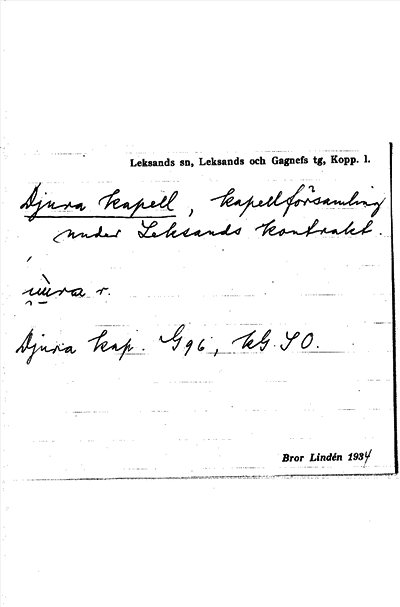 Leksands sn, Leksands och Gagnefs tg, Kopp. l.
Djura kapell, kapellförsamling
under Leksands kontrakt.
r.
Djura kap. G96, kG. SO.
Bror Lindén 1934